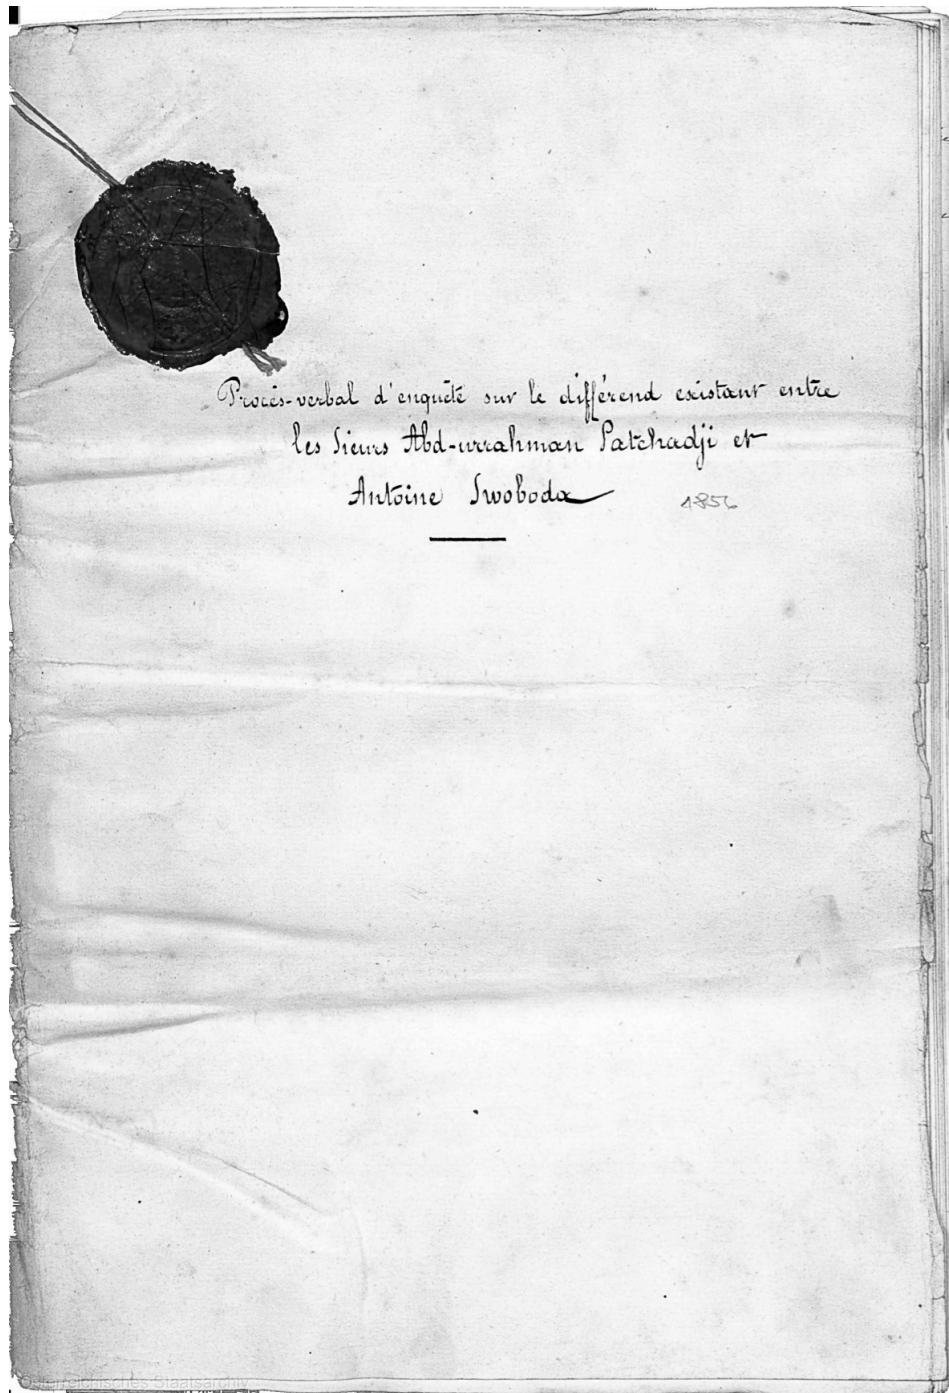 Procès-verbal d'enquête sur le différend existant entre
les Sieurs Abd-urrahman Patchadji et
Antoine Swoboda
1856
Österreichisches Staatsarchiv